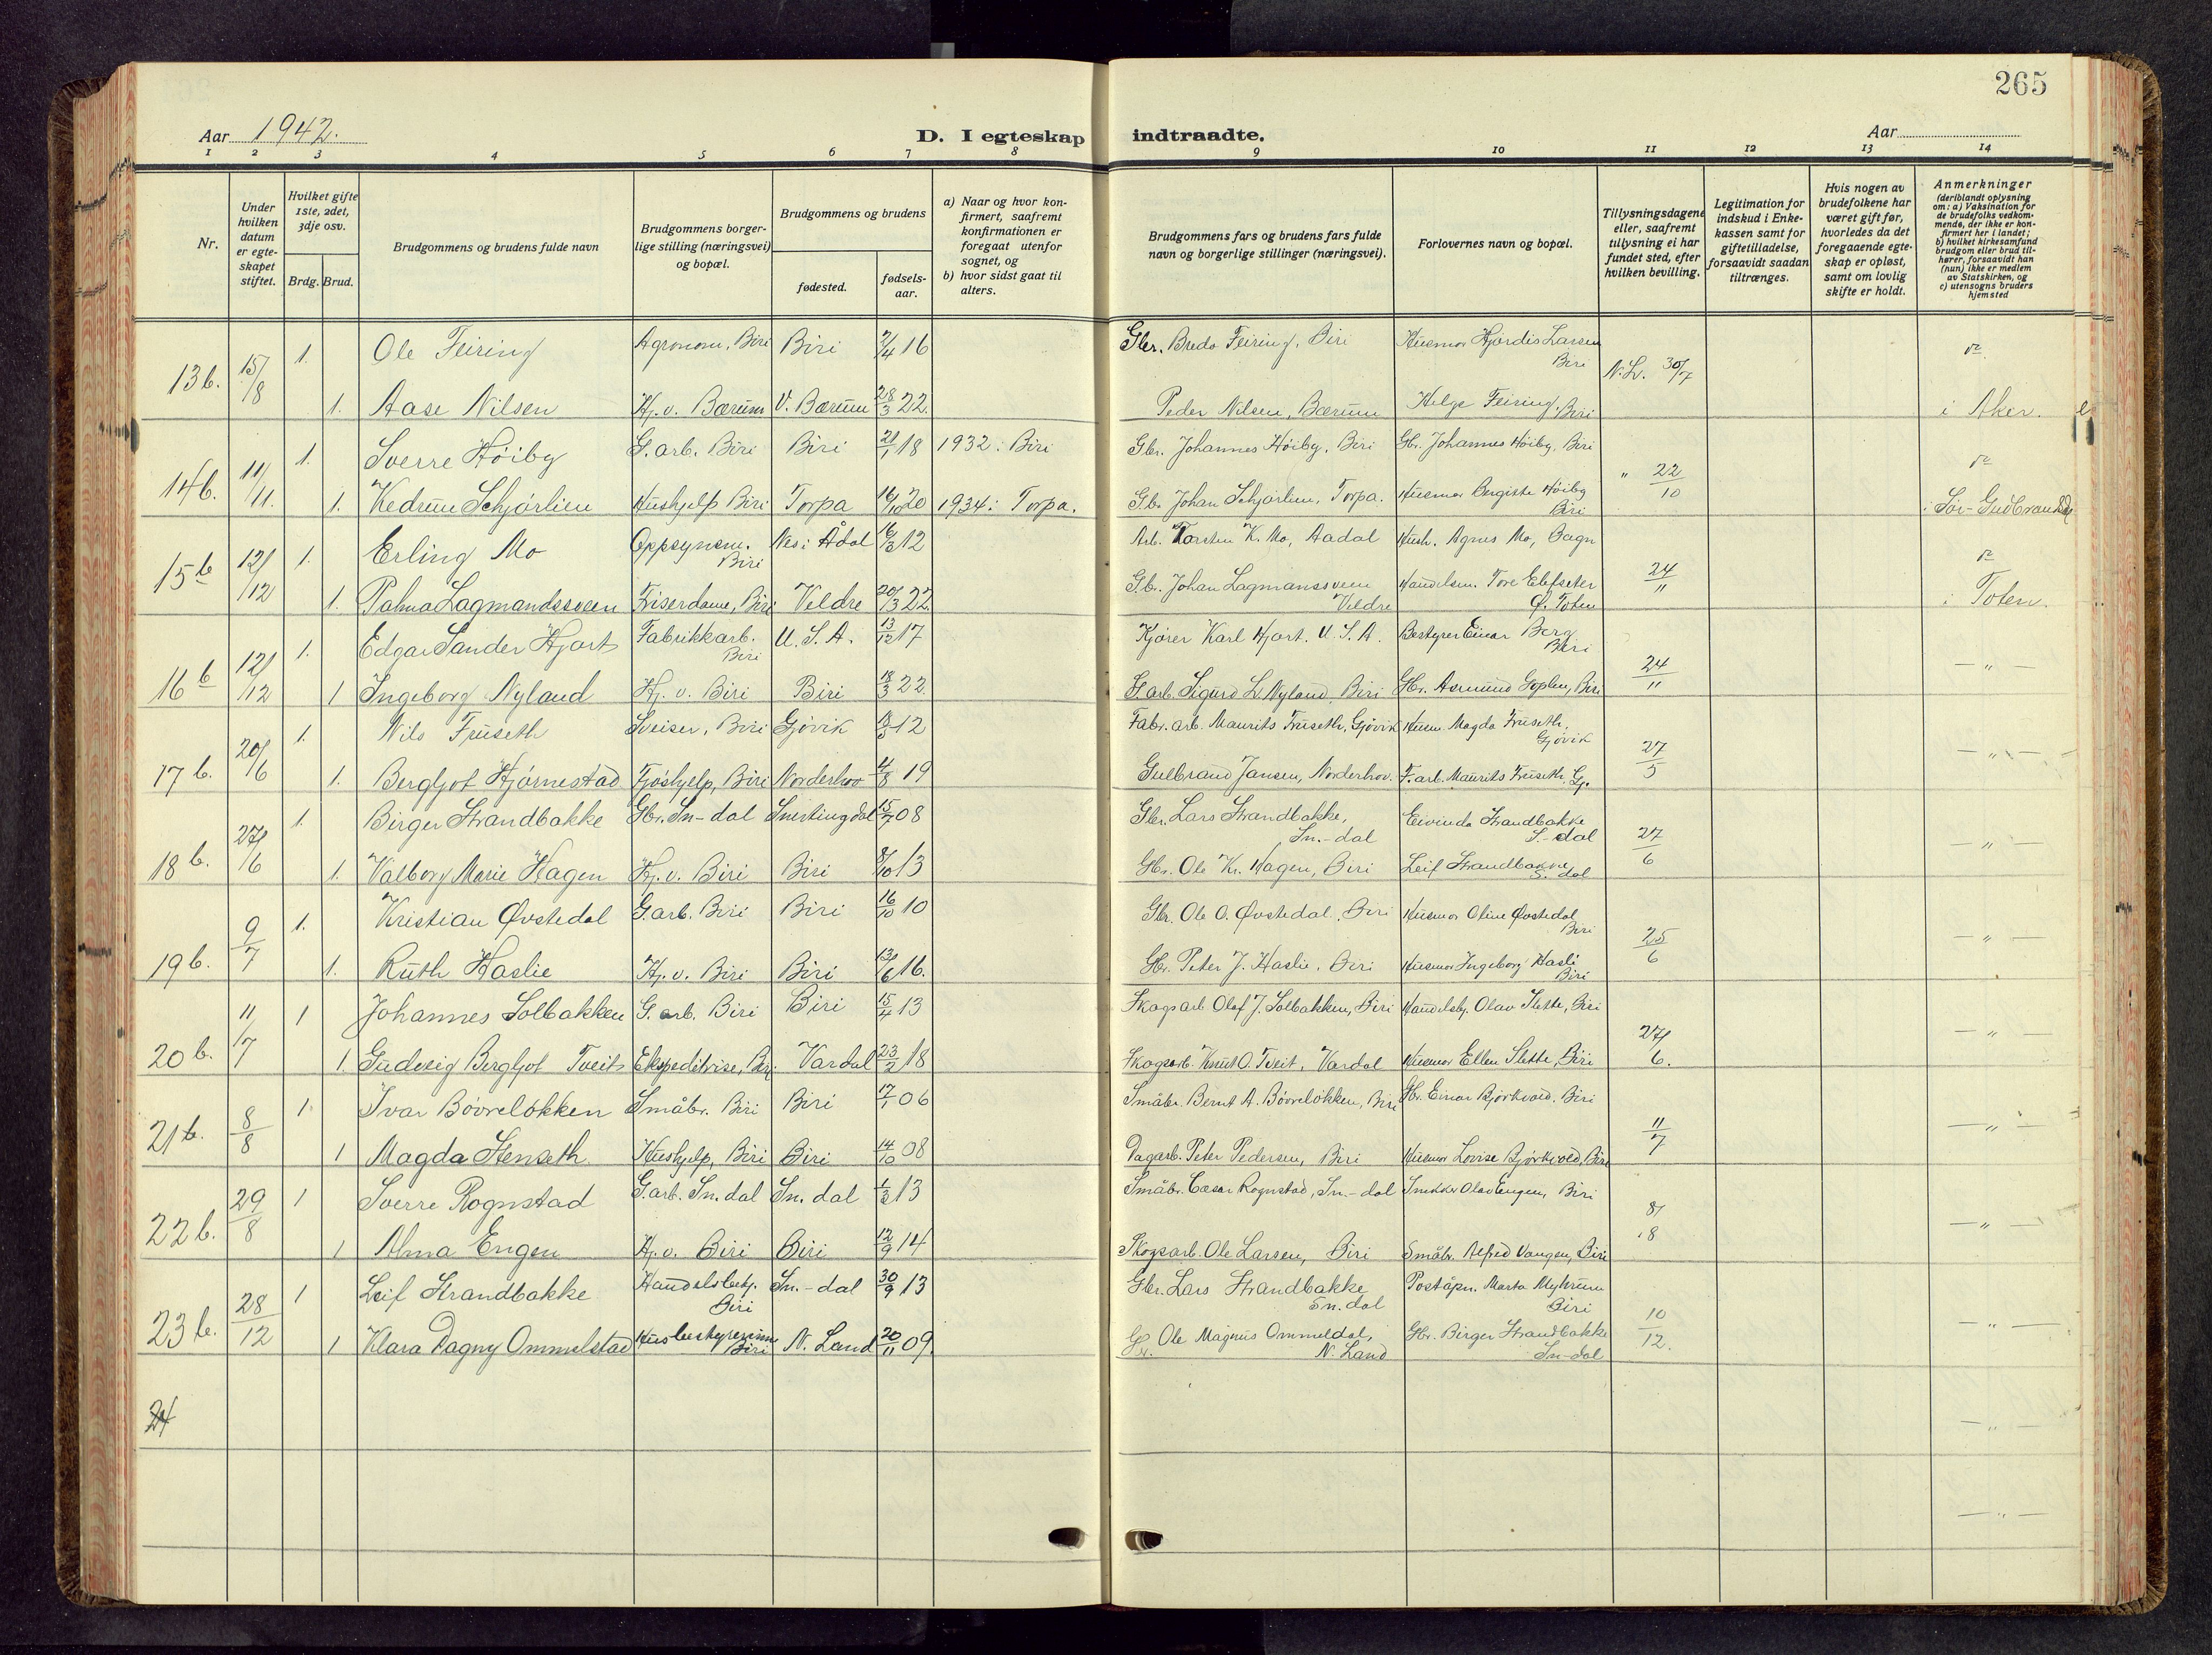 265
Aar 1942.
D. I egteskap indtraadte.
Aar
1 2 3 4 5 6 7 8 9 10 11 12 13 14
Nr.
Under hvilken datum er egteskapet stiftet.
Hvilket gifte 1ste, 2det, 3dje osv.
Brdg. Brud.
Brudgommens og brudens fulde navn
Brudgommens borger-
lige stilling (næringsvei)
og bopæl.
Brudgommens og brudens
fødested.
fødsels-
aar.
a) Naar og hvor kon-
firmert, saafremt
konfirmationen er
foregaat utenfor
sognet, og
b) hvor sidst gaat til
alters.
Brudgommens fars og brudens fars fulde
navn og borgerlige stillinger (næringsvei).
Forlovernes navn og bopæl.
Tillysningsdagene
eller, saafremt
tillysning ei har
fundet sted, efter
hvilken bevilling.
Legitimation for
indskud i Enke-
kassen samt for
giftetilladelse,
forsaavidt saadan
tiltrænges.
Hvis nogen av
brudefolkene har
været gift før,
hvorledes da det
foregaaende egte-
skap er opløst,
samt om lovlig
skifte er holdt.
Anmerkninger
(deriblandt oplysning
om: a) Vaksination for
de brudefolks vedkom-
mende, der ikke er kon-
firmert her i landet;
b) hvilket kirkesamfund
brudgom eller brud til-
hører, forsaavidt han
(hun) ikke er medlem
av Statskirken, og
c) utensogns bruders
hjemsted
13 b. 15/8 1. Ole Feiring Agronom, Biri Biri 2/4 16 Gbr. Bredo Feiring, Biri Husmor Hjørdis Larsen Biri N.L. 30/7
1. Aase Nilsen Hj. v. Bærum V. Bærum 28/3 22. Peder Nilsen, Bærum Helge Feiring, Biri i Aker.
14 b. 11/11. 1. Sverre Høiby G. arb. Biri Biri 21/1 18 1932: Biri Gbr. Johannes Høiby, Biri Gbr. Johannes Høiby, Biri " 22/10
1. Kedrun Schjørlien Hushjelp Biri Torpa 16/10 20 1934: Torpa. Gb. Johan Schjørlien, Torpa. Husmor Bergitte Høiby Biri i Sør-Gudbrandsd
15 b 12/12 1. Erling Mo Oppsynsm. Biri Nes i Ådal 16/3 12 Arb. Torsten K. Mo, Aadal Hush. Agnes Mo, Bagn 24/11
1. Palma Lagmandssveen Friserdame, Biri Veldre 20/3 22. G.b. Johan Lagmanssveen Veldre Handelsm. Tore Elefseter Ø. Toten i Toten.
16 b 12/12 1. Edgar Sander Hjort Fabrikkarb. Biri U.S.A. 13/12 17 Kjører Karl Hjort. U.S.A. Bestyrer Einar Berg Biri 24/11 — " —
1 Ingeborg Nyland Hj. v. Biri Biri 18/3 22. G. arb. Sigurd L. Nyland, Biri Gbr. Asmund Goplen, Biri
17 b. 20/6 1. Nils Fruseth Sveiser, Biri Gjøvik 12 Fabr. arb. Maurits Fruseth, Gjøvik Husm. Magda Fruseth, Gjøvik 27/5 — " —
1. Bergljot Hjørnestad Fjøshjelp, Biri Norderhov 4/8 19 Gulbrand Jansen, Norderhov. F. arb. Maurits Fruseth, Gj.
18 b. 27/6 1. Birger Strandbakke Gbr. Sn-dal Snertingdal 15/7 08 Gbr. Lars Strandbakke, Sn.-dal Eivinda Strandbakke S.-dal 27/6 — " —
1. Valborg Marie Hagen Hj. v. Biri Biri 8/10 13 Gbr. Ole Kr. Hagen, Biri Leif Strandbakke S. dal
19 b. 9/7 1. Kristian Øvstedal G. arb. Biri Biri 16/10 10 Gbr. Ole O. Øvstedal, Biri Husmor Oline Øvstedal, Biri 25/6 — " —
1. Ruth Haslie Hj. v. Biri Biri 13/6 16. Gbr. Peter J. Haslie, Biri Husmor Ingeborg Hasli Biri
20 b. 11/7 1 Johannes Solbakken G. arb. Biri Biri 15/4 13 Skogsarb. Olaf J. Solbakken, Biri Handelsbj. Olav Slette, Biri 27/6. — " —
1. Gudveig Bergljot Tveit Ekspeditrise, Biri Vardal 23/2 18 Skogsarb. Knut O. Tveit, Vardal Husmor Ellen Slette, Biri
21 b. 8/8 1 Ivar Bövreløkken Småbr. Biri Biri 17/1 06 Småbr. Bernt A. Bövreløkken, Biri Gbr. Einar Bjørkvold, Biri 11/7 — " —
1 Magda Stenseth Hushjelp, Biri Biri 14/10 08 Dagarb. Peter Pedersen, Biri Husmor Lovise Bjørkvold, Biri
22 b. 29/8 1 Sverre Rognstad G. arb. Sn. dal Sn. dal 1/3 13 Småbr. Cæsar Rognstad, Sn.-dal Snekker Olav Engen, Biri 8/8 — " —
1 Alma Engen Hj. v. Biri Biri 12/9 14 Skogsarb. Ole Larsen, Biri Småbr. Alfred Vangen, Biri
23 b. 28/12 1 Leif Strandbakke Handelsbetj. Biri Sn.-dal 30/9 13 Gbr. Lars Strandbakke Sn. dal Poståpn. Marta Myhrum Biri 10/12. — " —
1 Klara Dagny Ommelstad Husbestyrerinne Biri N. Land 20/11 09. Ole Magnus Ommeldal, N. Land Gbr. Birger Strandbakke Sn-dal
24 — " —
— " —